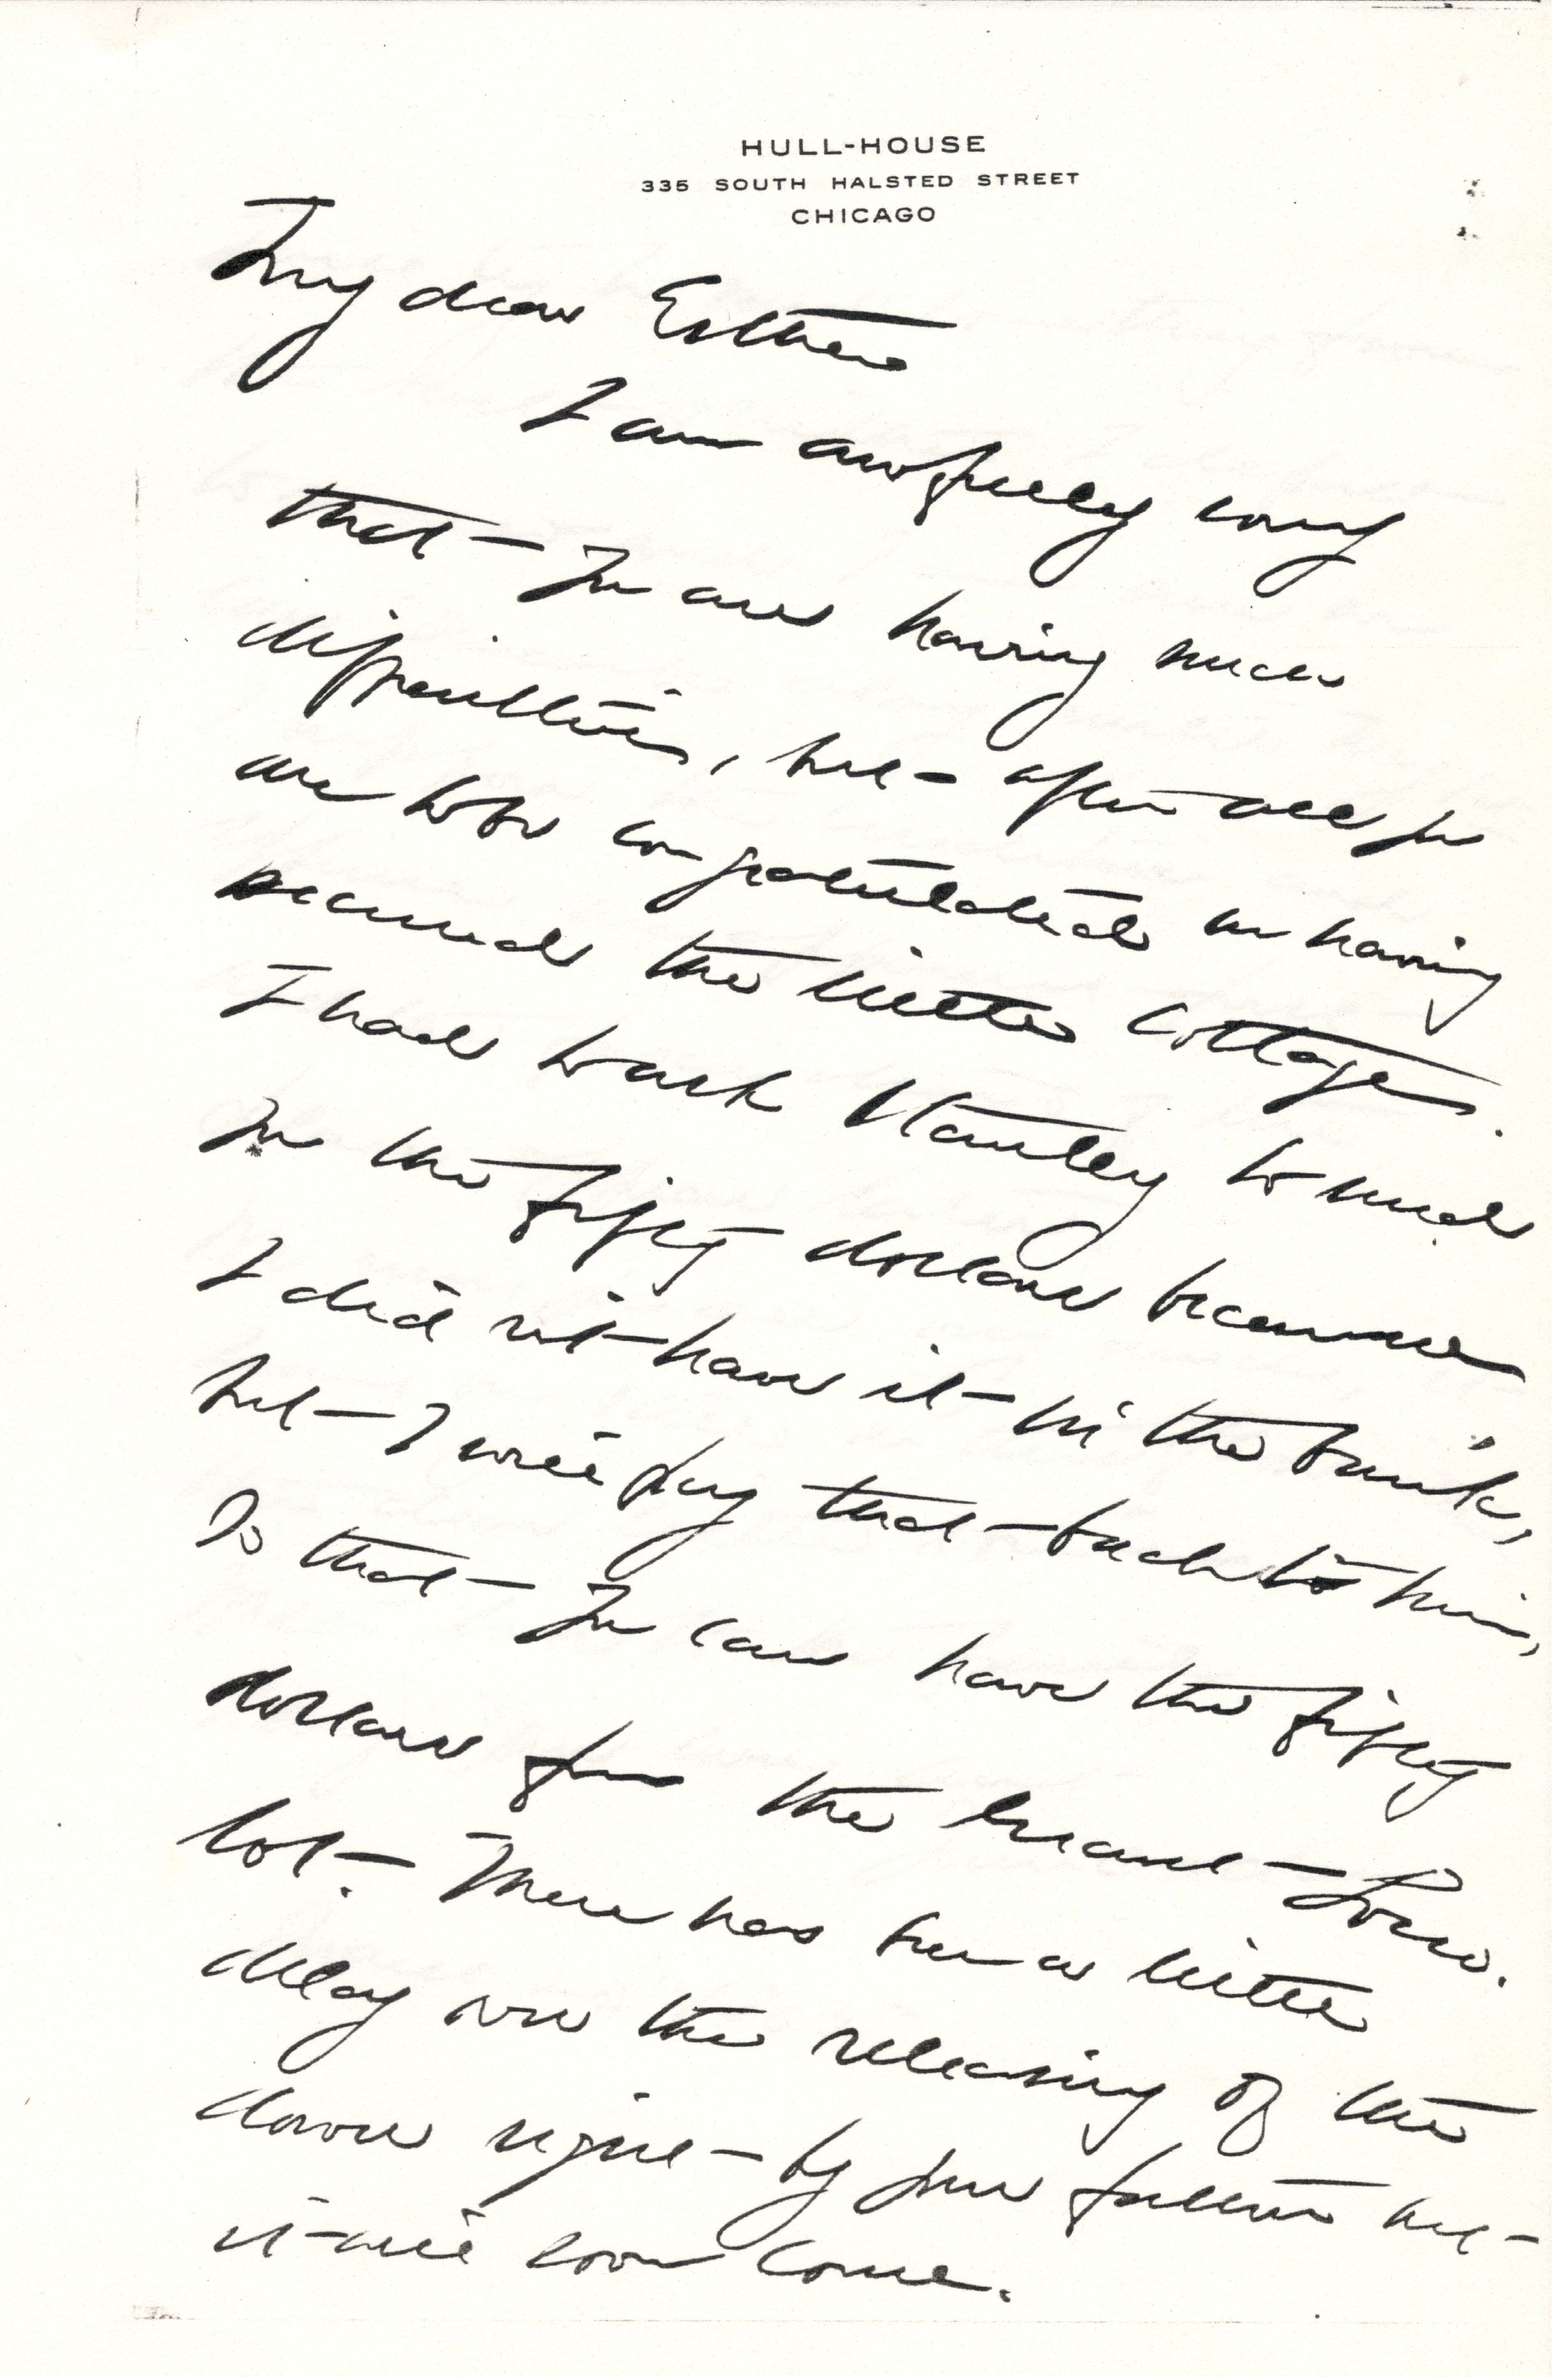 HULL-HOUSE
335 SOUTH HALSTED STREET
CHICAGO
My dear Esther
I am awfully sorry
that you are having such
difficulties, but after all you
are to be congratulated on having
secured the little cottage.
I had to ask Stanley to send
you the fifty dollars because
I did not have it in the bank,
but I will pay that back to him,
So that you can have the fifty
dollars from the vacant
lot. There has been a little
delay over the releasing of the
dower right by your father but
it will soon come.